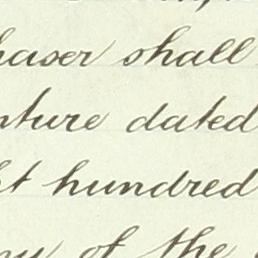 haser shall
nture dated
ht hundred
ny of the